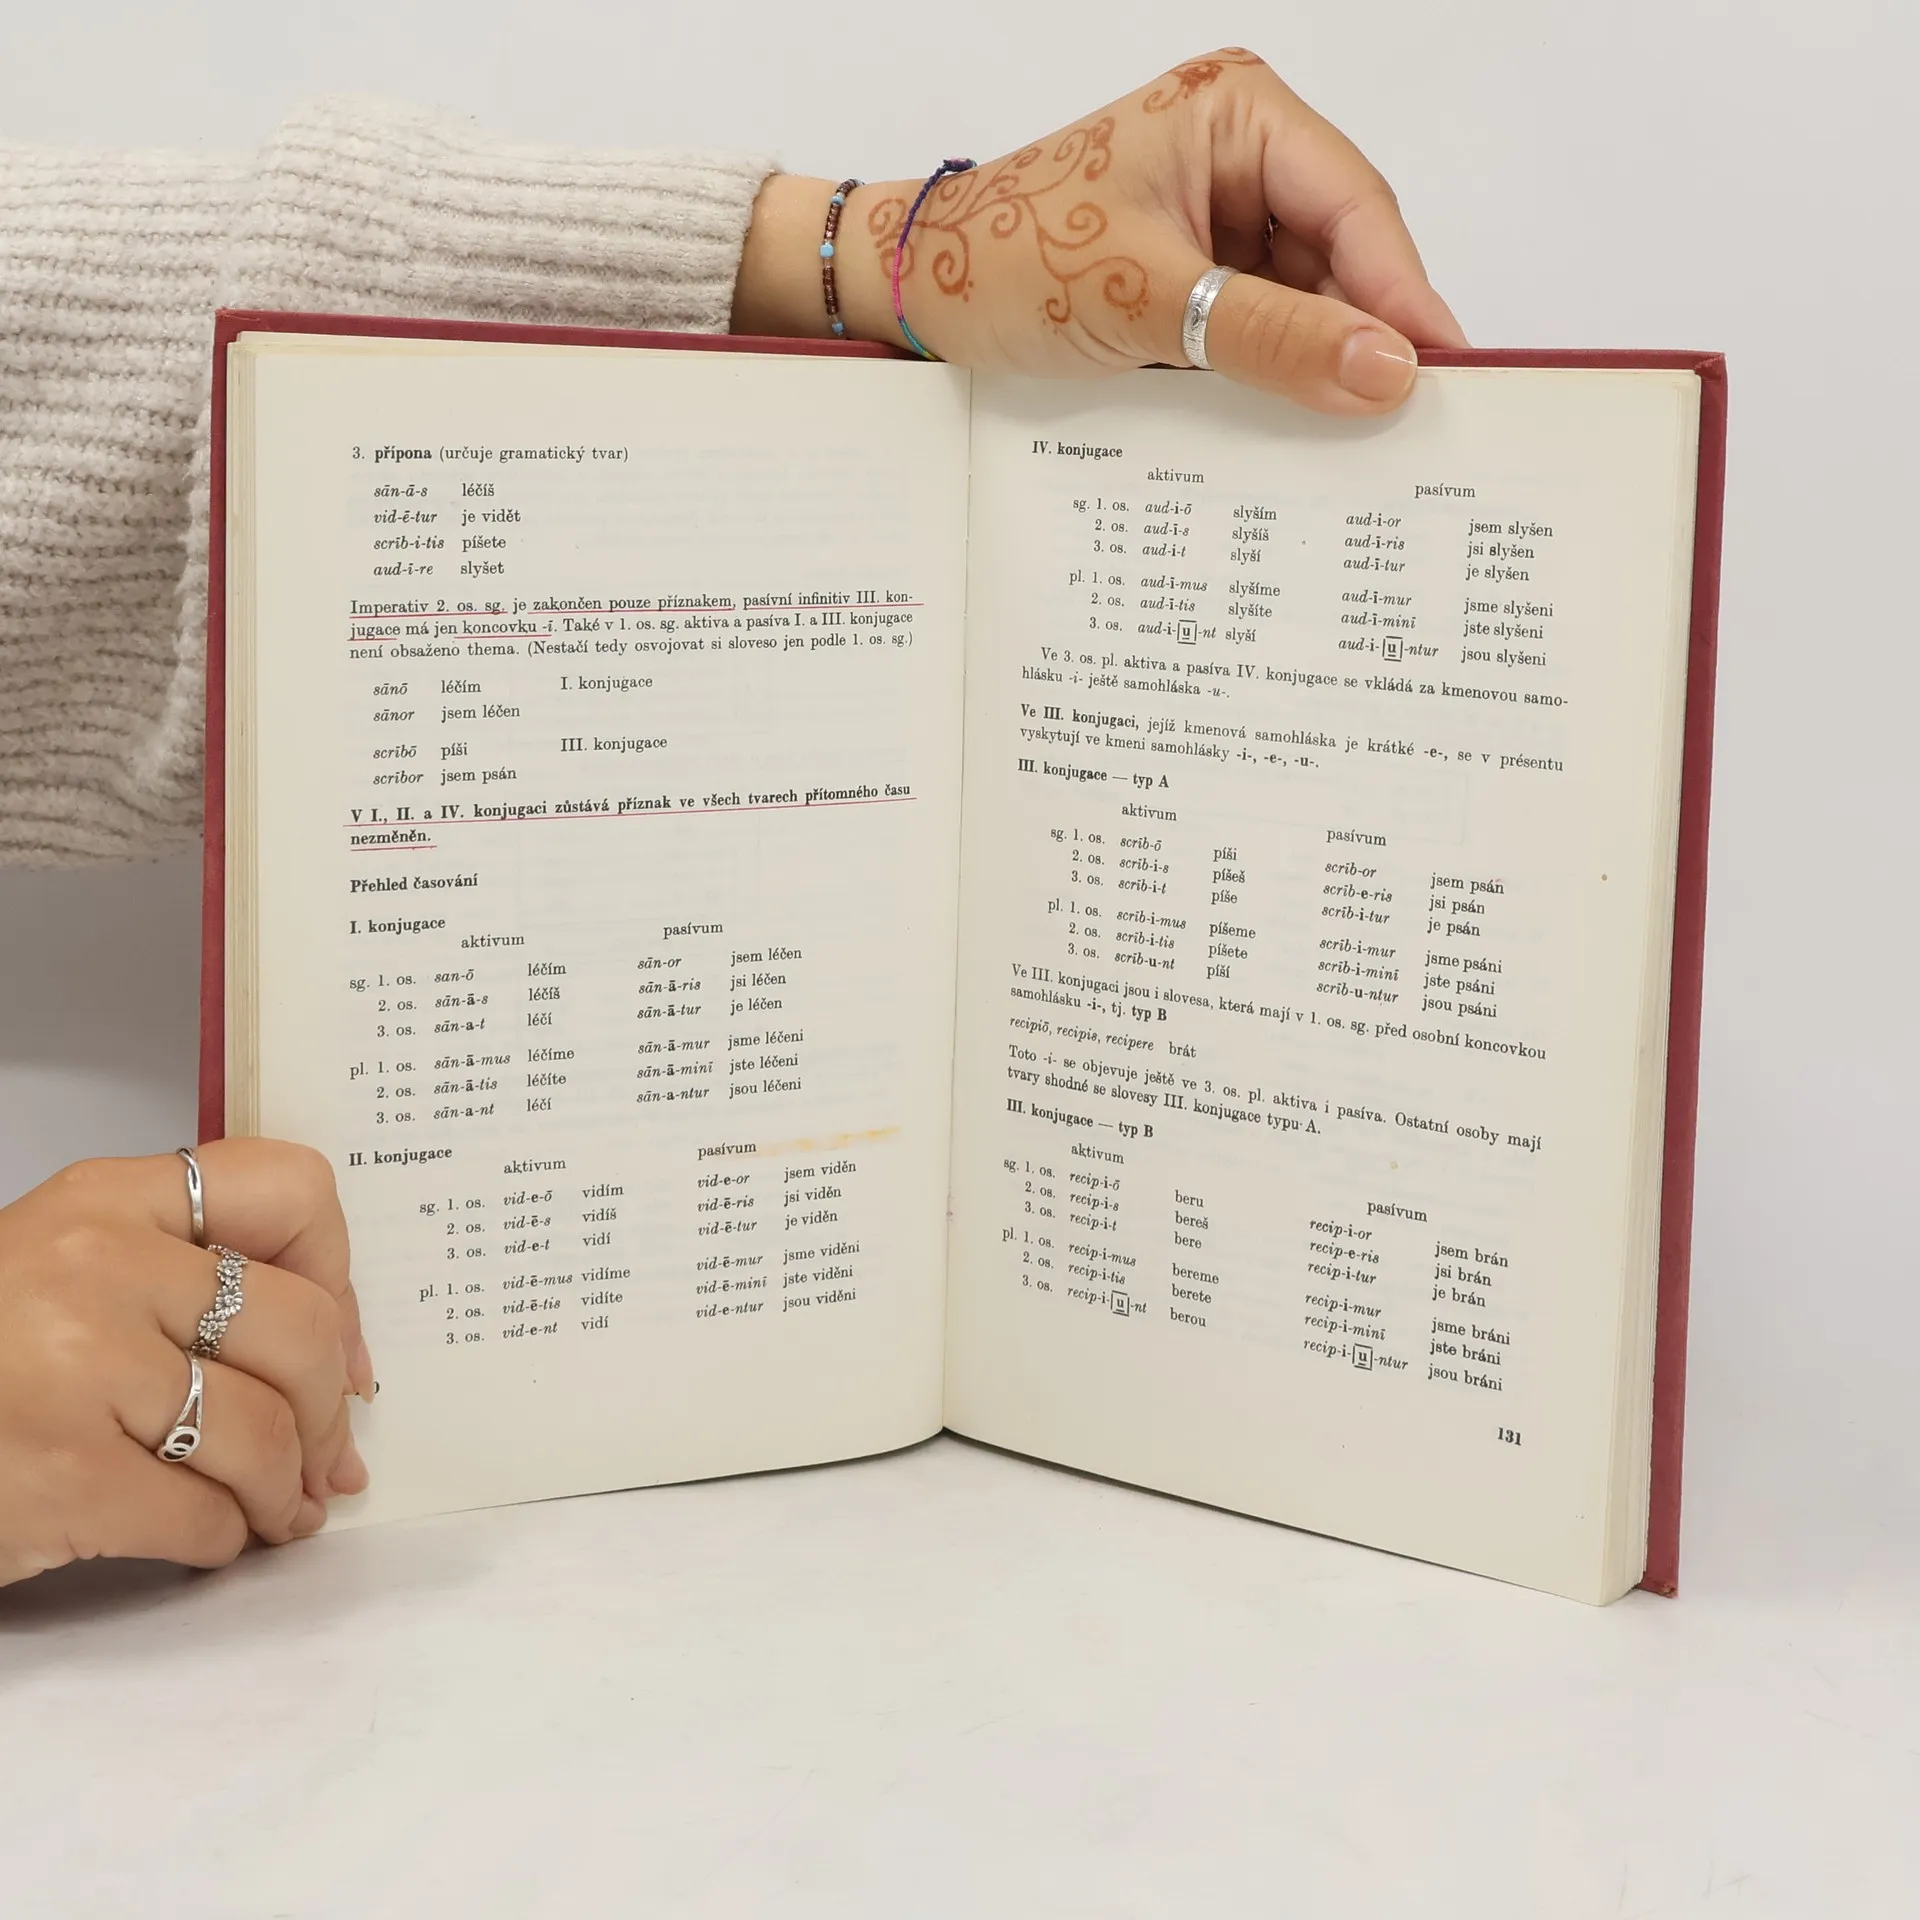 3. přípona (určuje gramatický tvar)
sān-ā-s léčíš
vid-ē-tur je vidět
scrīb-i-tis píšete
aud-ī-re slyšet
Imperativ 2. os. sg. je zakončen pouze příznakem, pasívní infinitiv III. kon-
jugace má jen koncovku -ī. Také v 1. os. sg. aktiva a pasíva I. a III. konjugace
není obsaženo thema. (Nestačí tedy osvojovat si sloveso jen podle 1. os. sg.)
sānō léčím I. konjugace
sānor jsem léčen
scrībō píši III. konjugace
scrībor jsem psán
V I., II. a IV. konjugaci zůstává příznak ve všech tvarech přítomného času
nezměněn.
Přehled časování
I. konjugace
aktivum pasívum
sg. 1. os. san-ō léčím sān-or jsem léčen
2. os. sān-ā-s léčíš sān-ā-ris jsi léčen
3. os. sān-a-t léčí sān-ā-tur je léčen
pl. 1. os. sān-ā-mus léčíme sān-ā-mur jsme léčeni
2. os. sān-ā-tis léčíte sān-ā-minī jste léčeni
3. os. sān-a-nt léčí sān-a-ntur jsou léčeni
II. konjugace
aktivum pasívum
sg. 1. os. vid-e-ō vidím vid-e-or jsem viděn
2. os. vid-ē-s vidíš vid-ē-ris jsi viděn
3. os. vid-e-t vidí vid-ē-tur je viděn
pl. 1. os. vid-ē-mus vidíme vid-ē-mur jsme viděni
2. os. vid-ē-tis vidíte vid-ē-minī jste viděni
3. os. vid-e-nt vidí vid-e-ntur jsou viděni
IV. konjugace
aktivum pasívum
sg. 1. os. aud-i-ō slyším aud-i-or jsem slyšen
2. os. aud-ī-s slyšíš aud-ī-ris jsi slyšen
3. os. aud-i-t slyší aud-ī-tur je slyšen
pl. 1. os. aud-ī-mus slyšíme aud-ī-mur jsme slyšeni
2. os. aud-ī-tis slyšíte aud-ī-minī jste slyšeni
3. os. aud-i-u-nt slyší aud-i-u-ntur jsou slyšeni
Ve 3. os. pl. aktiva a pasíva IV. konjugace se vkládá za kmenovou samo-
hlásku -i- ještě samohláska -u-.
Ve III. konjugaci, jejíž kmenová samohláska je krátké -e-, se v présentu
vyskytují ve kmeni samohlásky -i-, -e-, -u-.
III. konjugace — typ A
aktivum pasívum
sg. 1. os. scrīb-ō píši scrīb-or jsem psán
2. os. scrīb-i-s píšeš scrīb-e-ris jsi psán
3. os. scrīb-i-t píše scrīb-i-tur je psán
pl. 1. os. scrīb-i-mus píšeme scrīb-i-mur jsme psáni
2. os. scrīb-i-tis píšete scrīb-i-minī jste psáni
3. os. scrīb-u-nt píší scrīb-u-ntur jsou psáni
Ve III. konjugaci jsou i slovesa, která mají v 1. os. sg. před osobní koncovkou
samohlásku -i-, tj. typ B
recipiō, recipis, recipere brát
Toto -i- se objevuje ještě ve 3. os. pl. aktiva i pasíva. Ostatní osoby mají
tvary shodné se slovesy III. konjugace typu A.
III. konjugace — typ B
aktivum pasívum
sg. 1. os. recip-i-ō beru recip-i-or jsem brán
2. os. recip-i-s bereš recip-e-ris jsi brán
3. os. recip-i-t bere recip-i-tur je brán
pl. 1. os. recip-i-mus bereme recip-i-mur jsme bráni
2. os. recip-i-tis berete recip-i-minī jste bráni
3. os. recip-i-u-nt berou recip-i-u-ntur jsou bráni
131